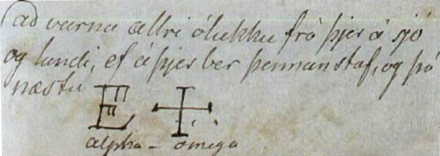 að varna allri ólukku frá þjer á sjó
og landi, ef á þjer ber þennan staf, og þá
næstu
alpha - ómega